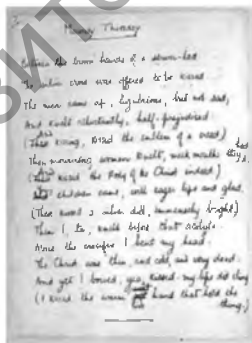 Maundy Thursday
Between the brown hands of a server-lad
The silver cross was offered to be kissed
The men came up, lugubrious, but not sad,
And knelt reluctantly, half-prejudiced
kissing, kissed the emblem of a creed.)
Then mourning women knelt, meek mouths they had
kissed the Body of the Christ indeed.)
children came, with eager lips and glad,
kissed a silver doll, immensely bright.)
Then I, too, knelt before that acolyte.
Above the crucifix I bent my head.
The Christ was thin, and cold, and very dead.
And yet I bowed, yea, kissed. my lips did cling
(I kissed the warm hand that held the thing.)